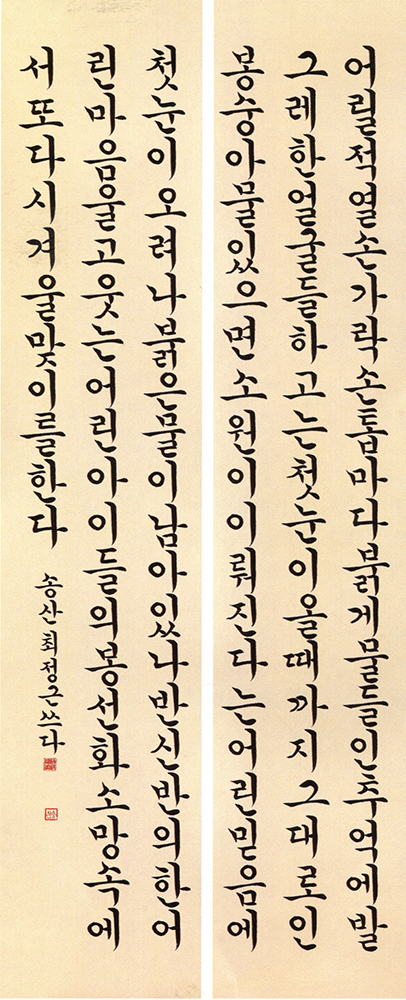 어릴적열손가락손톱마다붉게물들인추억에발
그레한얼굴들하고는첫눈이올때까지그대로인
봉숭아물있으면소원이이뤄진다는어린믿음에
첫눈이오려나붉은물이남아있나반신반의한어
린마음울고웃는어린아이들의봉선화소망속에
서또다시겨울맞이를한다
송산최정근쓰다